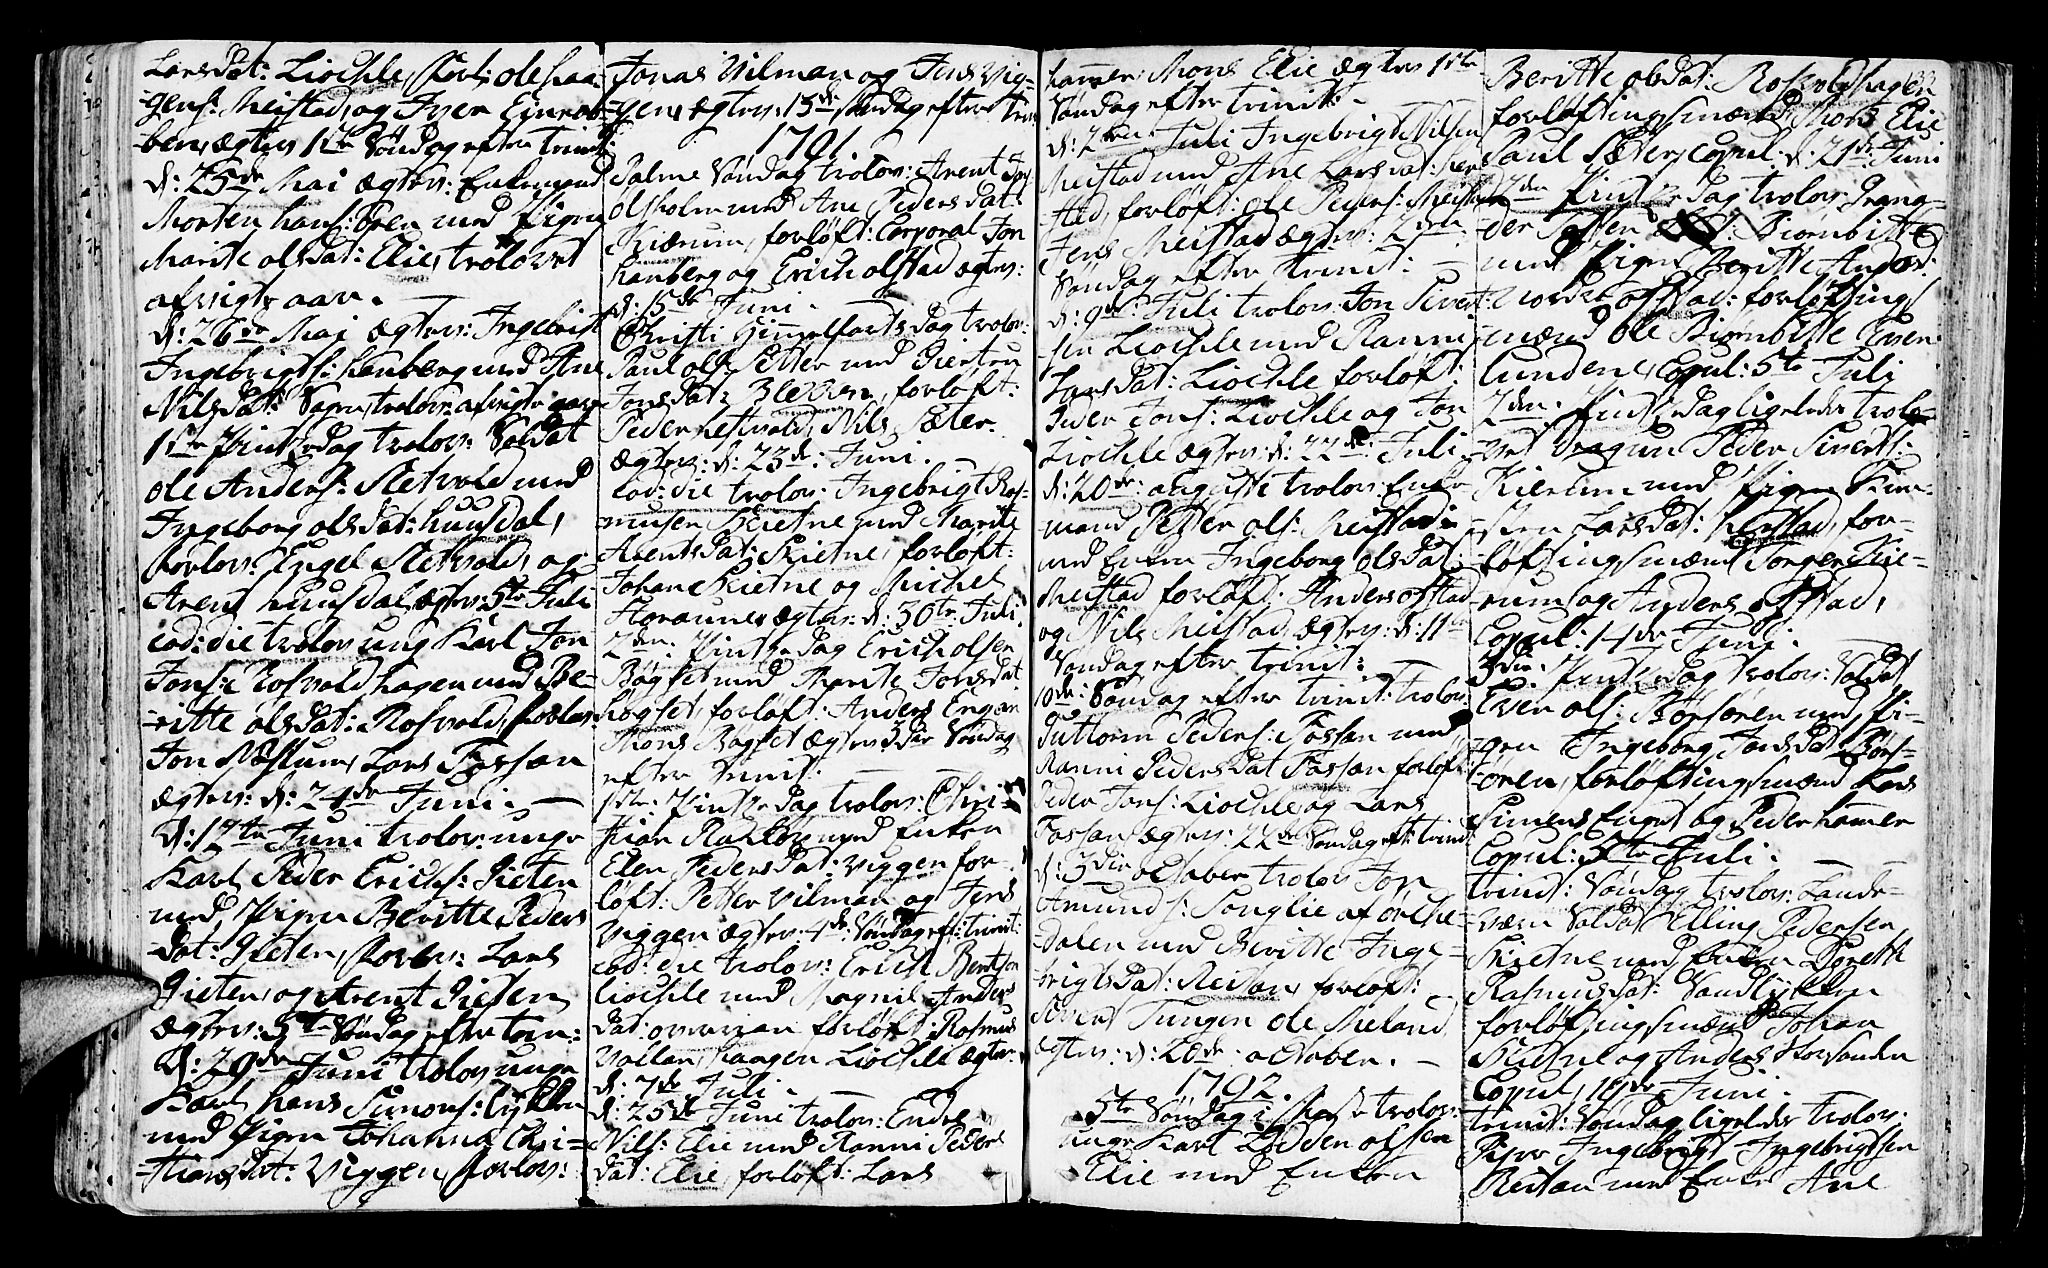 Larsdat: Liochle, forl: ole haa-
gens: Meistad, og Iver Einrob-
ben, ægtev 1te Søndag efter trinit:
d: 25de Mai ægtev: Enkemand
Morten hans: Ören med Pigen
Marite olsdat: Elie, trolovet
afvigte aar.
d: 26de Mai ægtev: Ingebrigt
Ingebrigts: hanberg med Ane
Nilsdat: trolov: afvigte aar
1ste Pintzedag trolov: Soldat
ole Anders: Sletvold med
Ingeborg olsdat: huusdal,
forlov: Engel Sletvold, og
Arent huusdal, ægtev: 5te Juli
eod: die trolov ung Karl Jon
Jons: Rosvoldhagen med Be-
-ritte olsdat: Rosvold, forlov:
Jon Næstum, Lars Fossan
ægtev: d: 24de Juni.
d: 17te Juni trolov: unge
Karl Peder Erichs: Gieten
med Pigen Beritte Peders
dat: Gieten, forlov: Lars
Gieten, og Arent Gieten
ægtev: 5te Søndag efter trin:
d: 29de Juni trolov unge
Karl hans Simons: Lykken
med Pigen Johanna Chri-
-stiansdat: Viggen, forlov:
Jonas Vilman og Jens Vig-
gen, ægtev: 15de Søndag efter trin:
1791
Palme Søndag trolov: Arent Jon
olsholm med Ane Pedersdat:
Kiærum, forløft: Corporal Jon
hanberg og Erich olstad ægtev:
d: 15de Juni.
Christi Himmelfarts dag trolov:
Paul ols: Sætter med Giertru
Jonsdat: forløft:
Peder Nils Sæter.
Ægtev: d: 23de: Juni.
eod: die trolov: Ingebrigt Ras-
musen Skietne med Marite
Arentsdat: Skietne, forløft:
Johan Skietne og Michel
ægtev: d: 30te Juli
2den: Pintzedag Erich olsen
Bøgset med Marite Jonsdat
høgset, forløft: Anders Engan
Mons Bøgset ægtev 3die Søndag
efter trinit:
1ste: Pintzedag trolov: Chri-
stian med Enken
Elen Pedersdat: Viggen for-
løft: Petter Vilman og Jens
Viggen ægtev: 4de Søndag eft: trinit:
eod: die trolov: Erich Bentsen
Liochle med Magnil Anders
dat: forløft: Rasmus
Vollan, haagen Liochle ægtev:
d: 7de Juli
d: 25de Juni trolov: Endre
Nils: Elie med Ranni Peders
dat: Elie, forløft: Lars
hammer, Mons Elie ægtev 1ste
Søndag efter trinit:
d: 2den: Juli Ingebrigt Nilsen
Meistad med Ane Larsdat: her-
stad, forløft: ole Peders: Meistad
Jens Meistad ægtev: 2den
Søndag efter trinit:
d: 9de: Juli trolov: Jon Sivert-
sen Liochle med Ranni
Larsdat: Liochle forløft:
Peder Jons: Liochle og Jon
Liochle ægtev: d: 22de: Juli
d: 20de: augusti trolov: Enke-
mand Petter ols: Meistad
med Enken Ingeborg olsdat:
Meistad forløft: Anders olstad
og Nils Meistad, ægtev: d: 11te
Søndag efter trinit:
10de: Søndag efter trinit: trolov:
Guttorm Peders: Fossan med
Ranni Pedersdat Fossan forløft:
Peder Jons: Liochle og Lars
Fossan ægtev: 22de Søndag eft: trinit:
d: 3die october trolov Jon
Amunds: Songlie af orche-
-dalen med Beritte Inge-
-brigtsdat: Reitan, forløft:
Sivert Tungen ole Mieland,
ægtev: d: 20de: october.
1792.
5te Søndag i Faste trolov:
unge Karl olsen
Elie med Enken
Beritte olsdat: Rosvoldhagen
forløftingsmænd Mons Elie
Paul Sæter, copul: d: 21de Juni
2den Pintzedag trolov: Drang-
der Bionbitte
med Pigen Beritte Anders:
olstad: forløftings
mænd ole Bionbitte Even
lunden, Copul: 5te Juli
2den: Pintzedag ligeledes trolo-
-vet Dragun Peder Siverts:
Kierum med Pigen Kier-
-sten Larsdat: herstad, for-
løftingsmænd Torger Kie-
-rum og Anders olstad,
Copul: 14de Juni.
3die: Pintzedag trolov: Soldat
Even ols: Börsören med Pi-
gen Ingeborg Jonsdat Börs-
ören, forløftingsmænd Lars
Simens Enget og Peder hamer
Copul: 5te Juli.
trinit: Søndag trolov: Lande-
værn Soldat Elling Pedersen
Skietne med Enken Dorethe
Rasmusdat: Sandlykken
forløftingsmænd Johan
Skietne og Anders Horsanden
Copul, Juni.
trinit: Søndag ligeledes trolov:
Ingebrigt Ingebrigtsen
Reitan med Enke Ane